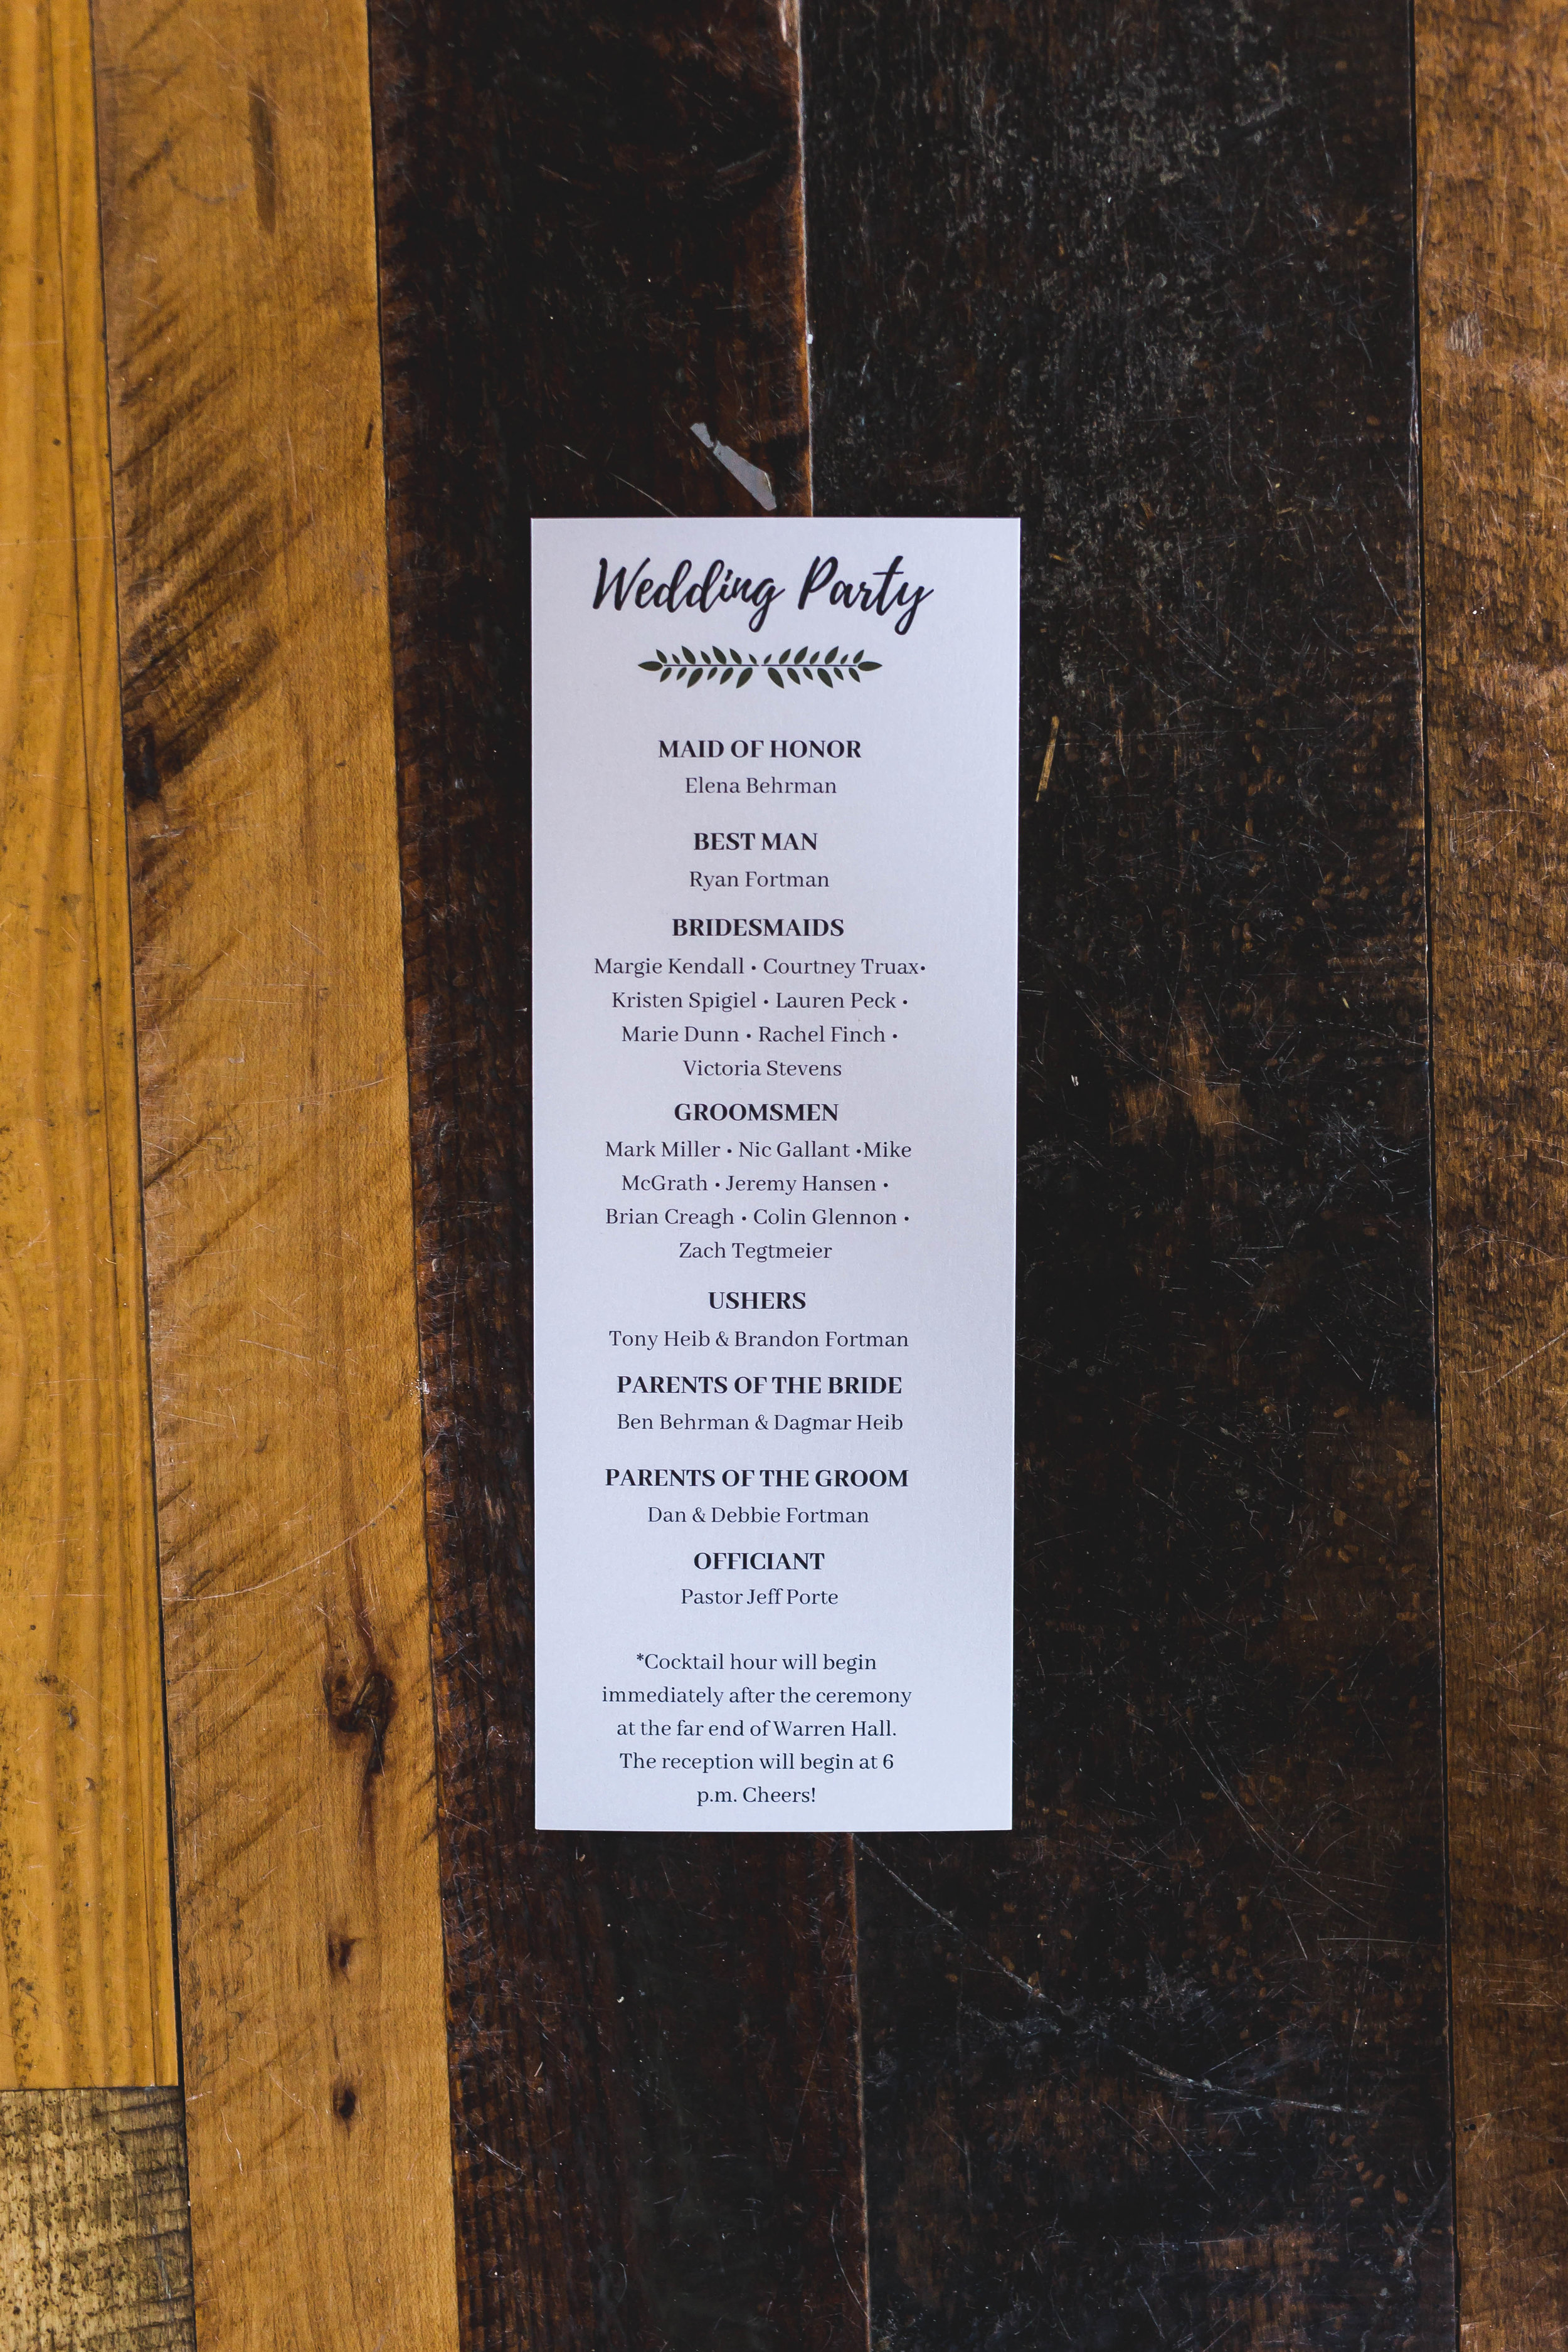 Wedding Party
MAID OF HONOR
Elena Behrman
BEST MAN
Ryan Fortman
BRIDESMAIDS
Margie Kendall • Courtney Truax•
Kristen Spigiel • Lauren Peck •
Marie Dunn • Rachel Finch •
Victoria Stevens
GROOMSMEN
Mark Miller • Nic Gallant •Mike
McGrath • Jeremy Hansen •
Brian Creagh • Colin Glennon •
Zach Tegtmeier
USHERS
Tony Heib & Brandon Fortman
PARENTS OF THE BRIDE
Ben Behrman & Dagmar Heib
PARENTS OF THE GROOM
Dan & Debbie Fortman
OFFICIANT
Pastor Jeff Porte
*Cocktail hour will begin
immediately after the ceremony
at the far end of Warren Hall.
The reception will begin at 6
p.m. Cheers!